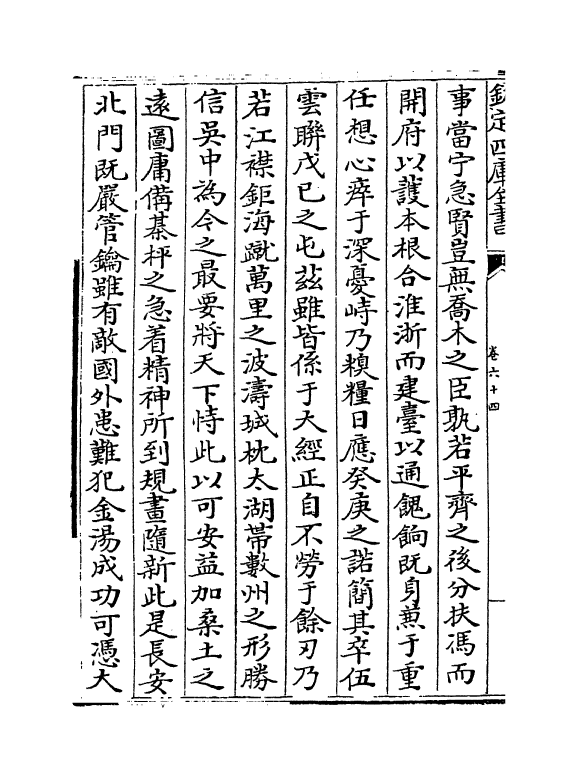 欽定四庫全書
卷六十四
事當宁急賢豈無喬木之臣孰若平齊之後分扶馮而
開府以護本根合淮浙而建臺以通餽餉既身兼于重
任想心瘁于深憂峙乃糗糧日應癸庚之諾簡其卒伍
雲聯戊巳之屯茲雖皆係于大經正自不勞于餘刃乃
若江襟鉅海蹴萬里之波濤城枕太湖帶數州之形勝
信吳中為今之最要將天下恃此以可安益加桑土之
遠圖庸備棊枰之急着精神所到規畫隨新此是長安
北門既嚴管鑰雖有敵國外患難犯金湯成功可憑大